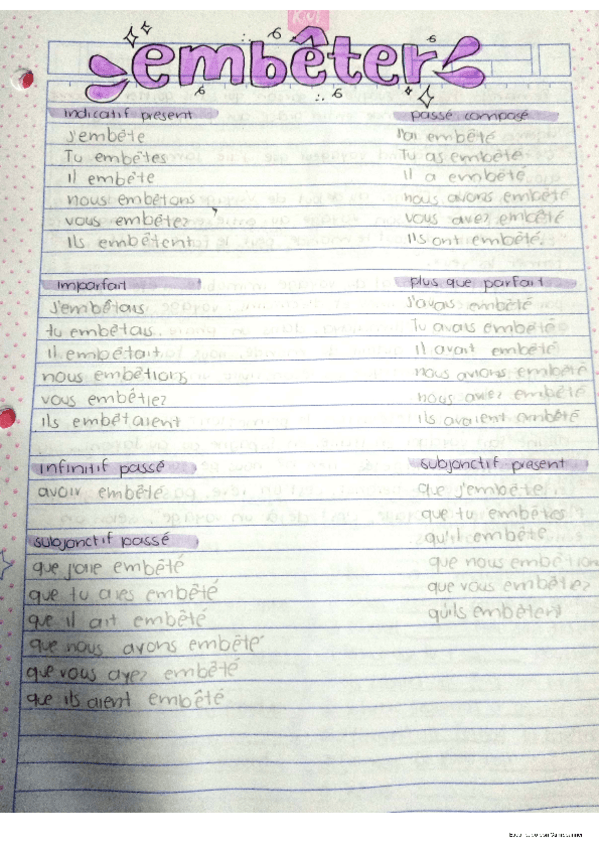 embêter
indicatif présent
J'embête
Tu embêtes
Il embête
nous embêtons
vous embêtez
Ils embêtent
passé composé
J'ai embêté
Tu as embêté
Il a embêté
nous avons embêté
vous avez embêté
Ils ont embêté.
imparfait
J'embêtais
tu embêtais
Il embêtait
nous embêtions
vous embêtiez
ils embêtaient
plus que parfait
J'avais embêté
Tu avais embêté
Il avait embêté
nous avions embêté
embêté
ils avaient embêté
infinitif passé
avoir embêté
subjonctif présent
que j'embête
que tu embêtes
qu'il embête
que nous embêtion
que vous embêtiez
qu'ils embêtent
subjonctif passé
que j'aie embêté
que tu aies embêté
que il ait embêté
que nous avons embêté
que vous ayez embêté
que ils aient embêté